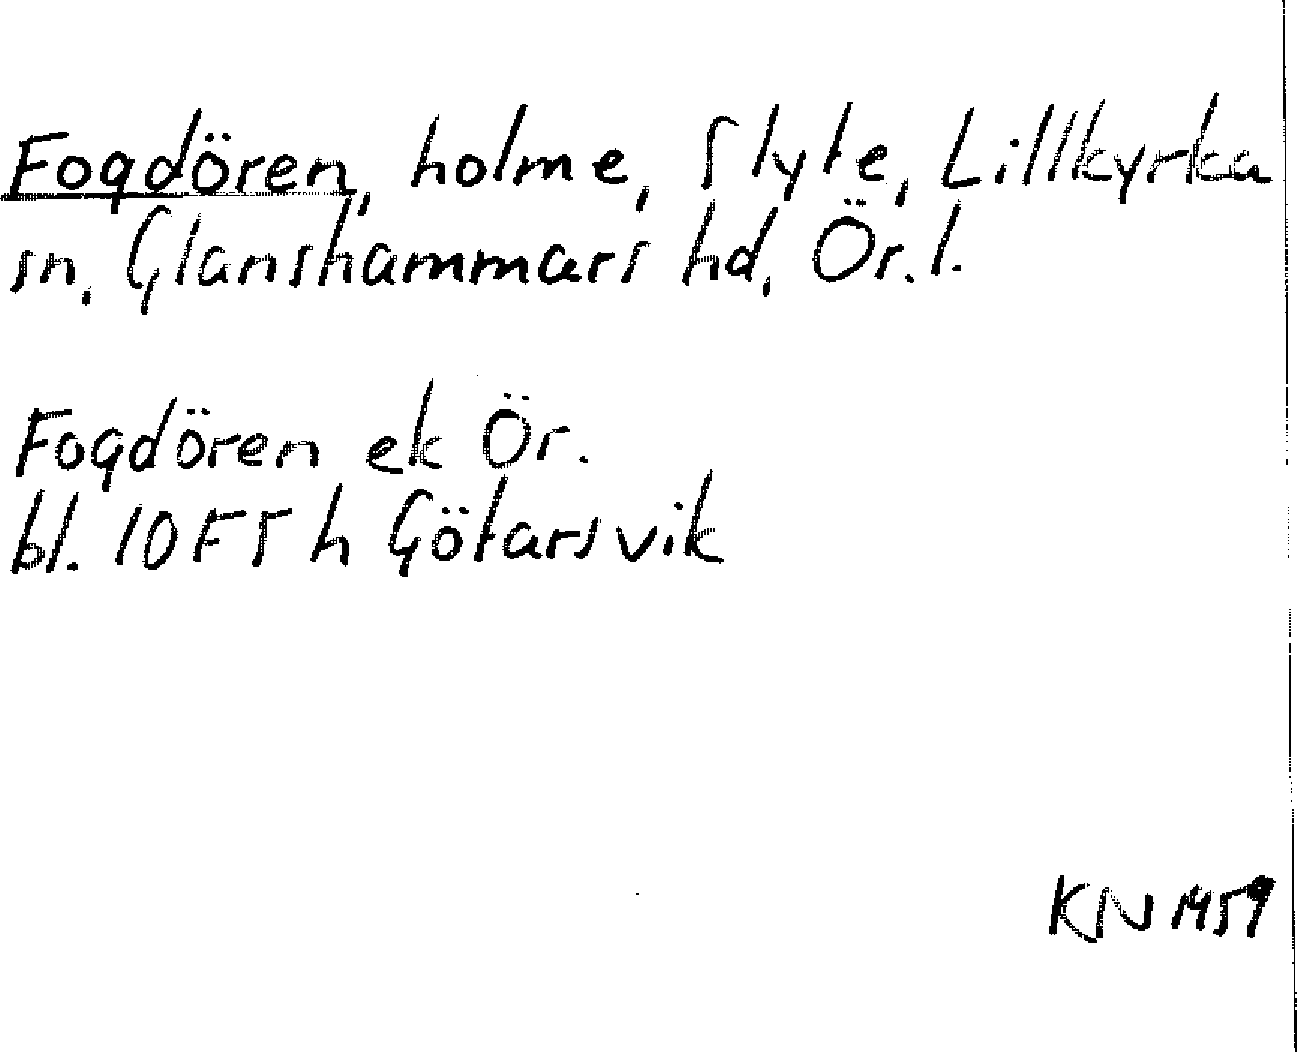 Fogdören, holme, Slyte, Lillkyrka
sn, Glanshammars hd, Ör. l.
Fogdören ek Ör.
bl. 10 F 5 h Götarsvik
KN 1959